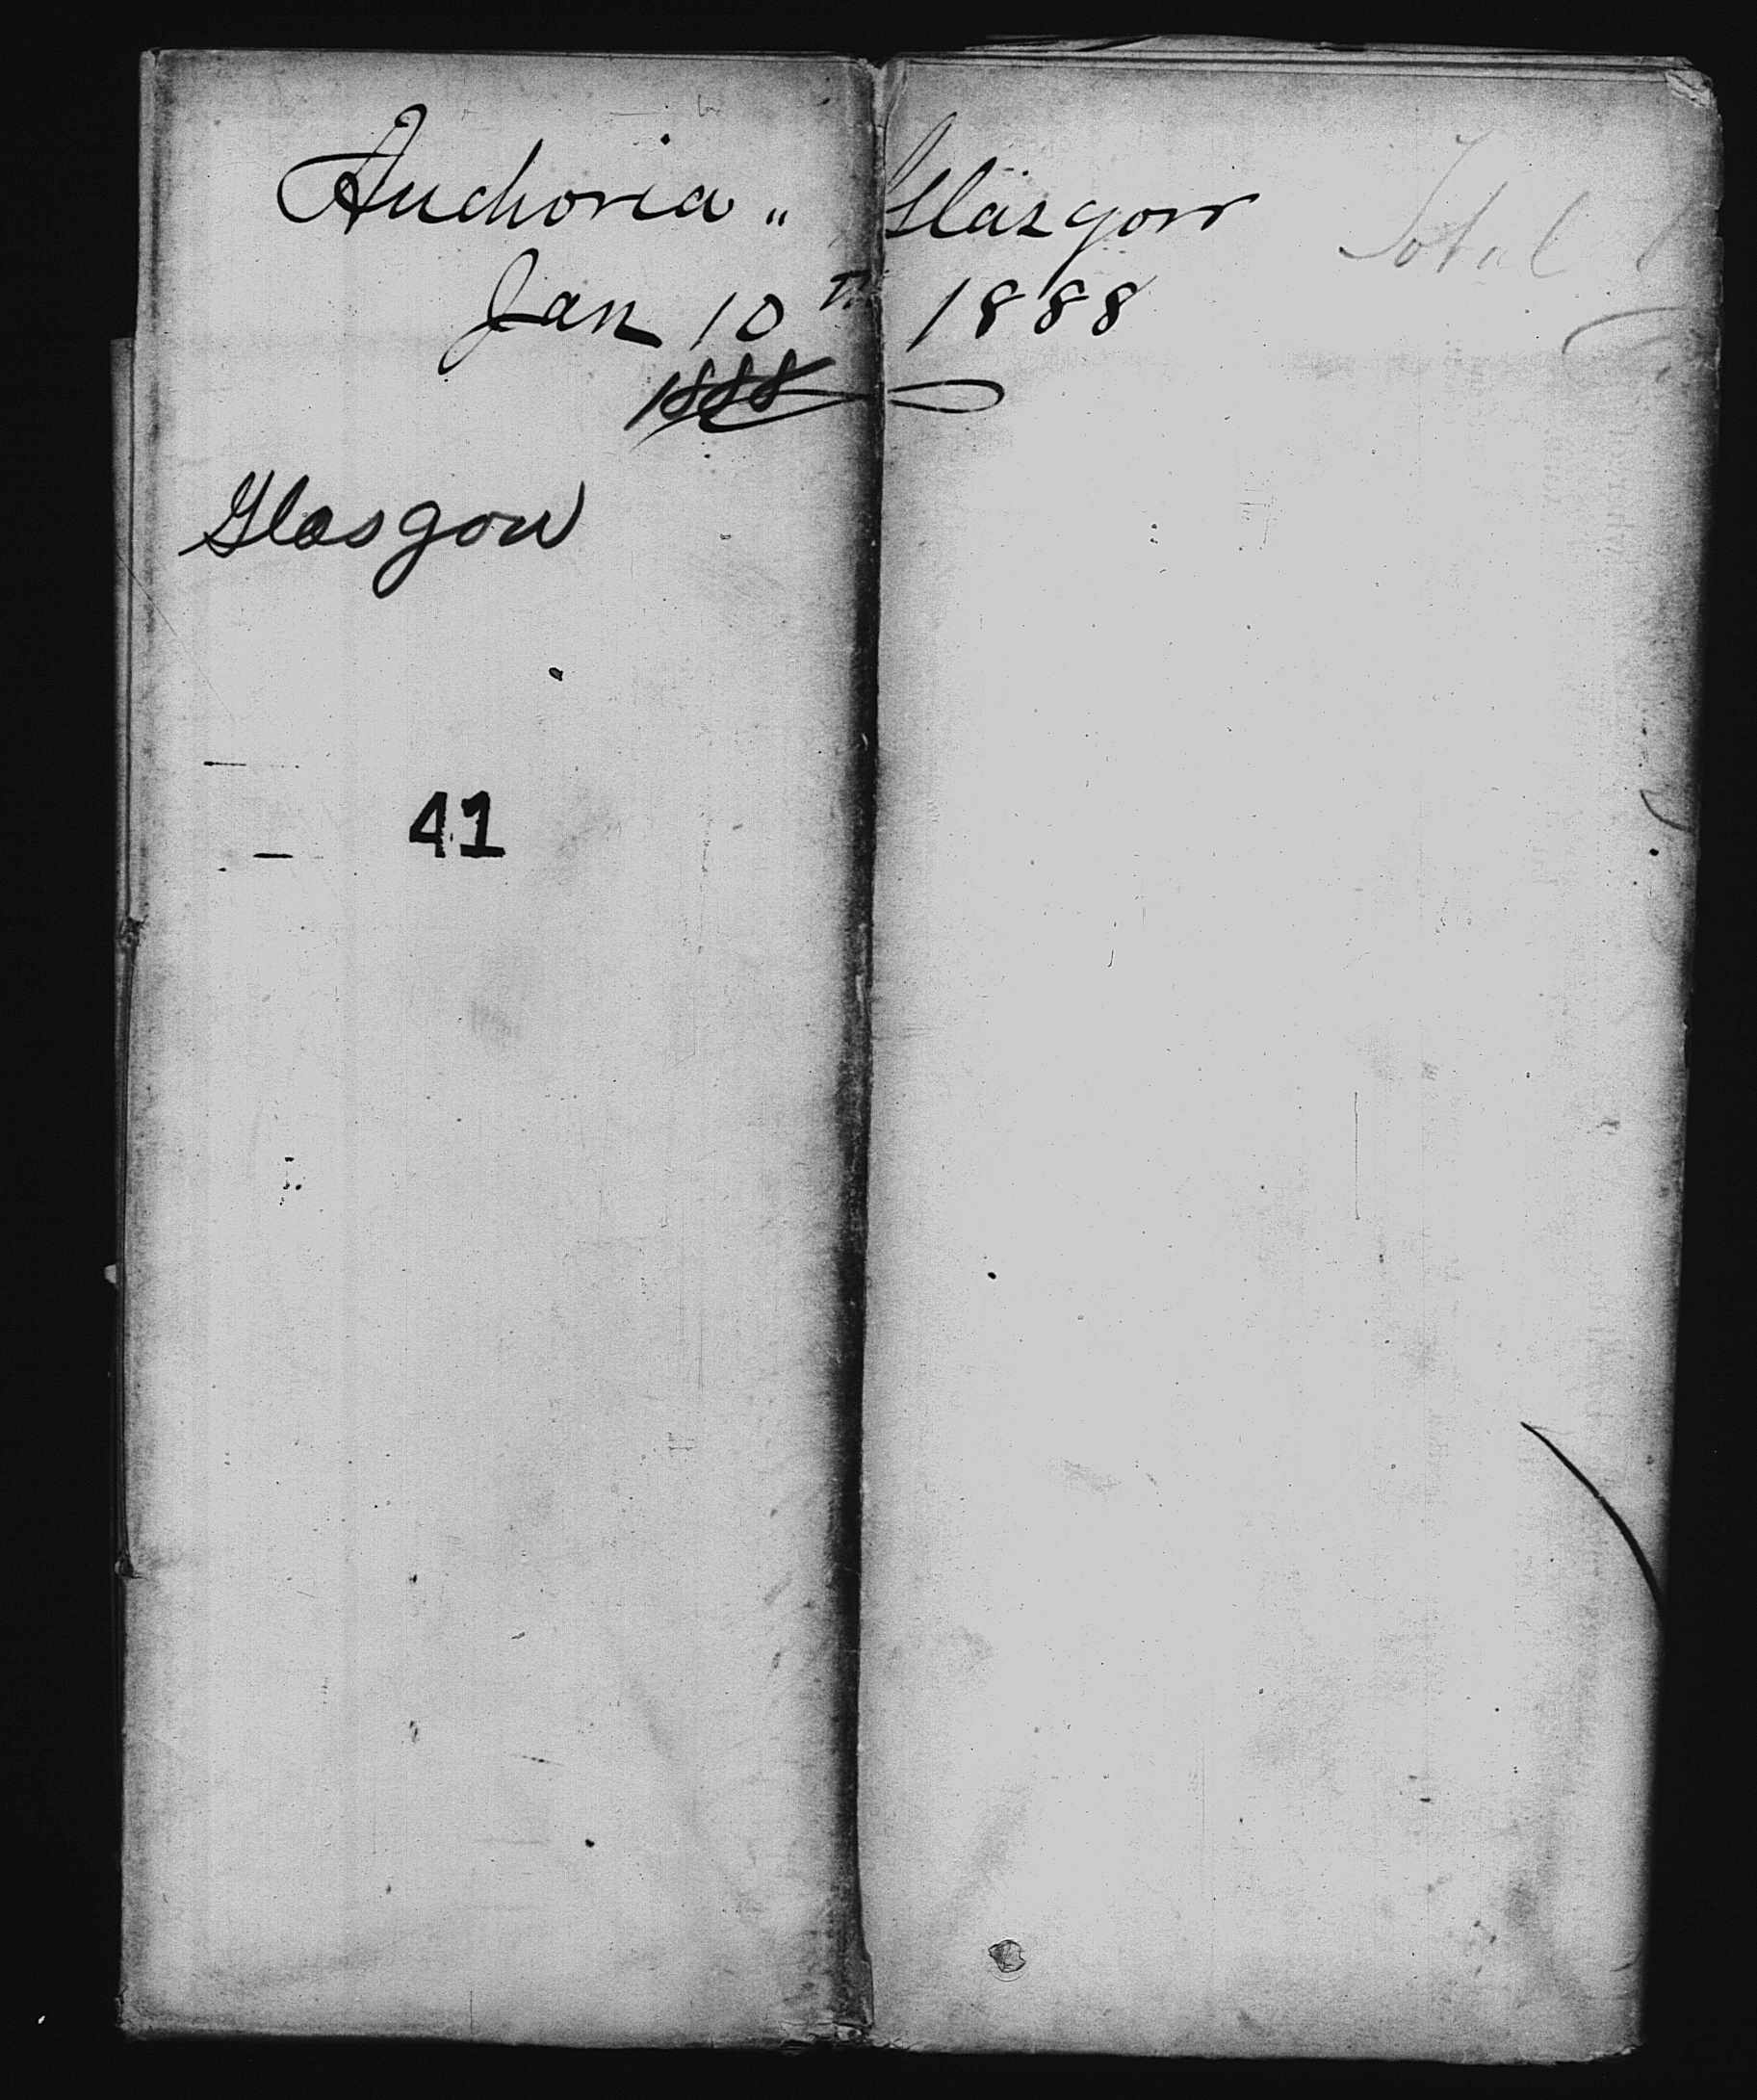 Anchoria „ Glasgow Total
Jan 10th 1888
1888
Glasgow
41